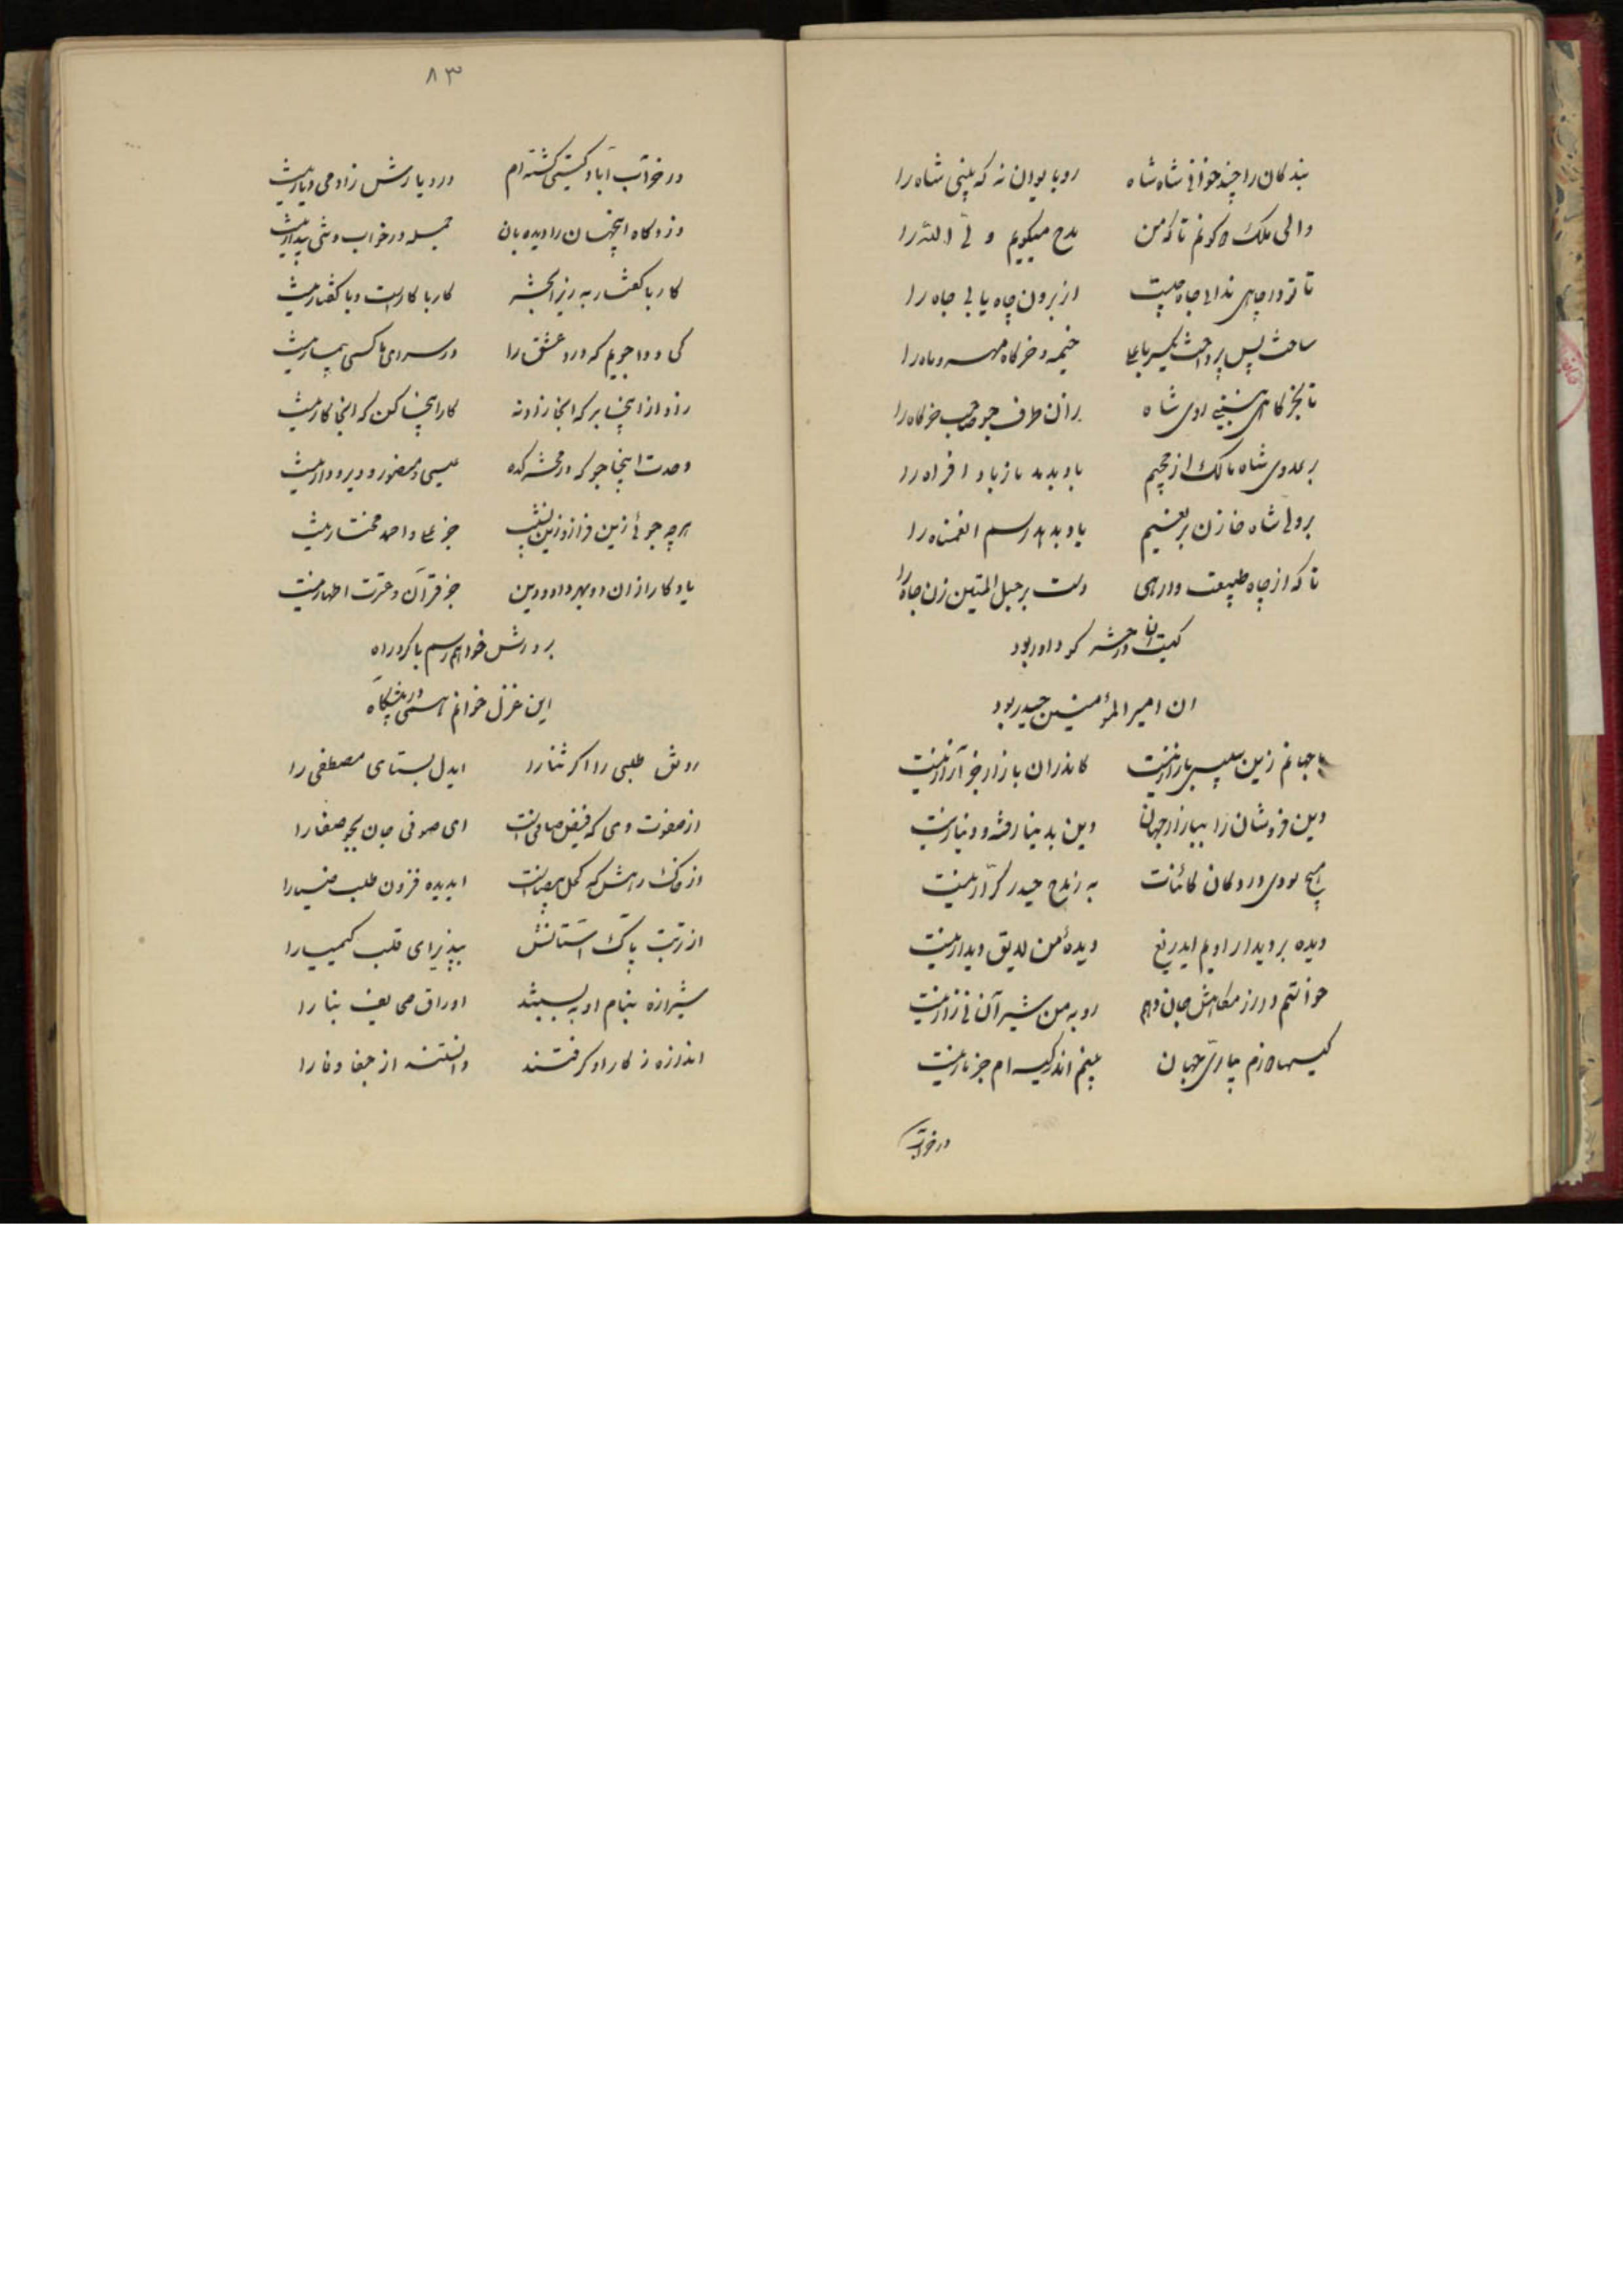 بندکان را چند خوانی شاه شاه روبایوان نه که بینی شاه را
والی ملک لا کونم تا که من مدح میکویم ولی الله را
تا تو در چاهی ندانی جاه چیست از برون چاه یابی جاه را
ساحت پس پرداخت خیمه و خرکاه مهر و ماه را
تا بخرکاهی شاه بر آن طرف خرکاه را
بر عدوی شاه مالک از جحیم یاد بدهد باز باد افراه را
بر ولی شاه خازن بر نعیم یاد بدهد رسم انعمناه را
تا که از چاه طبیعت وارهی دست بر حبل المتین زن چاه را
کیست آن در حشر کو داور بود
ان امیر المؤمنین حیدر بود
جهانم زین سپس بازار نیست کاندران بازار جز آزار نیست
دین فروشان را ببازار جهان دین بدینار رفته و دینار نیست
هیچ سودی در دکان کائنات به ز مدح حیدر کرّار نیست
دیده بر دیدار اویم ایدریغ دیده من لایق دیدار نیست
خواستم در رزمگاهش جان دهم روبه من شیر آن نیزار نیست
کیسها لازم جهان بینم اندر کیسه ام جز مار نیست
در خراب
۸۳
در خراب آباد کیتی کشته ام در دیارش ز ادمی دیار نیست
دزدکاه اینجهان را دیده بان جمله در خواب و شی بیدار نیست
کار با کفتار به زیرا بحشر کار با کار است و با کفتار نیست
کی دوا جویم که درد عشق را در سرای ما کسی بیمار نیست
زاد از اینجا بر که انجا زاد نه کار اینجا کن که انجا کار نیست
وحدت اینجا جو که در محشر کده عیسی و منصور و دیر و دار نیست
هرچه جوئی زین فراز و زین نشیب جز و احمد مختار نیست
یادکار از ان دو بهر داد و دین جز قرآن و عترت اطهار نیست
بر درش خواهم رسم با کرد راه
این غزل خوانم همی در پیشگاه
رونق طلبی را اکر ثنا را ایدل بستای مصطفی را
از صفوت وی که فیض صافی است ای صوفی جان بجو صفا را
از خاک رهش که کحل بیناست ایدیده فزون طلب ضیا را
از تربت پاک آستانش بپذیر ای قلب کیمیا را
شیرازه بنام او ببستند اوراق صحایف بنا را
اندازه ز کار او کرفتند دانستند از جفا وفا را